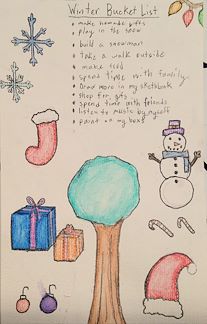 Winter Bucket List
• make homade gifts
• play in the snow
• build a snowman
• take a walk outside
• make food
• spend time with family
• Draw more in my sketchbook
• shop for gifts
• spend time with friends
• listen to music by myself
• paint on my boxes